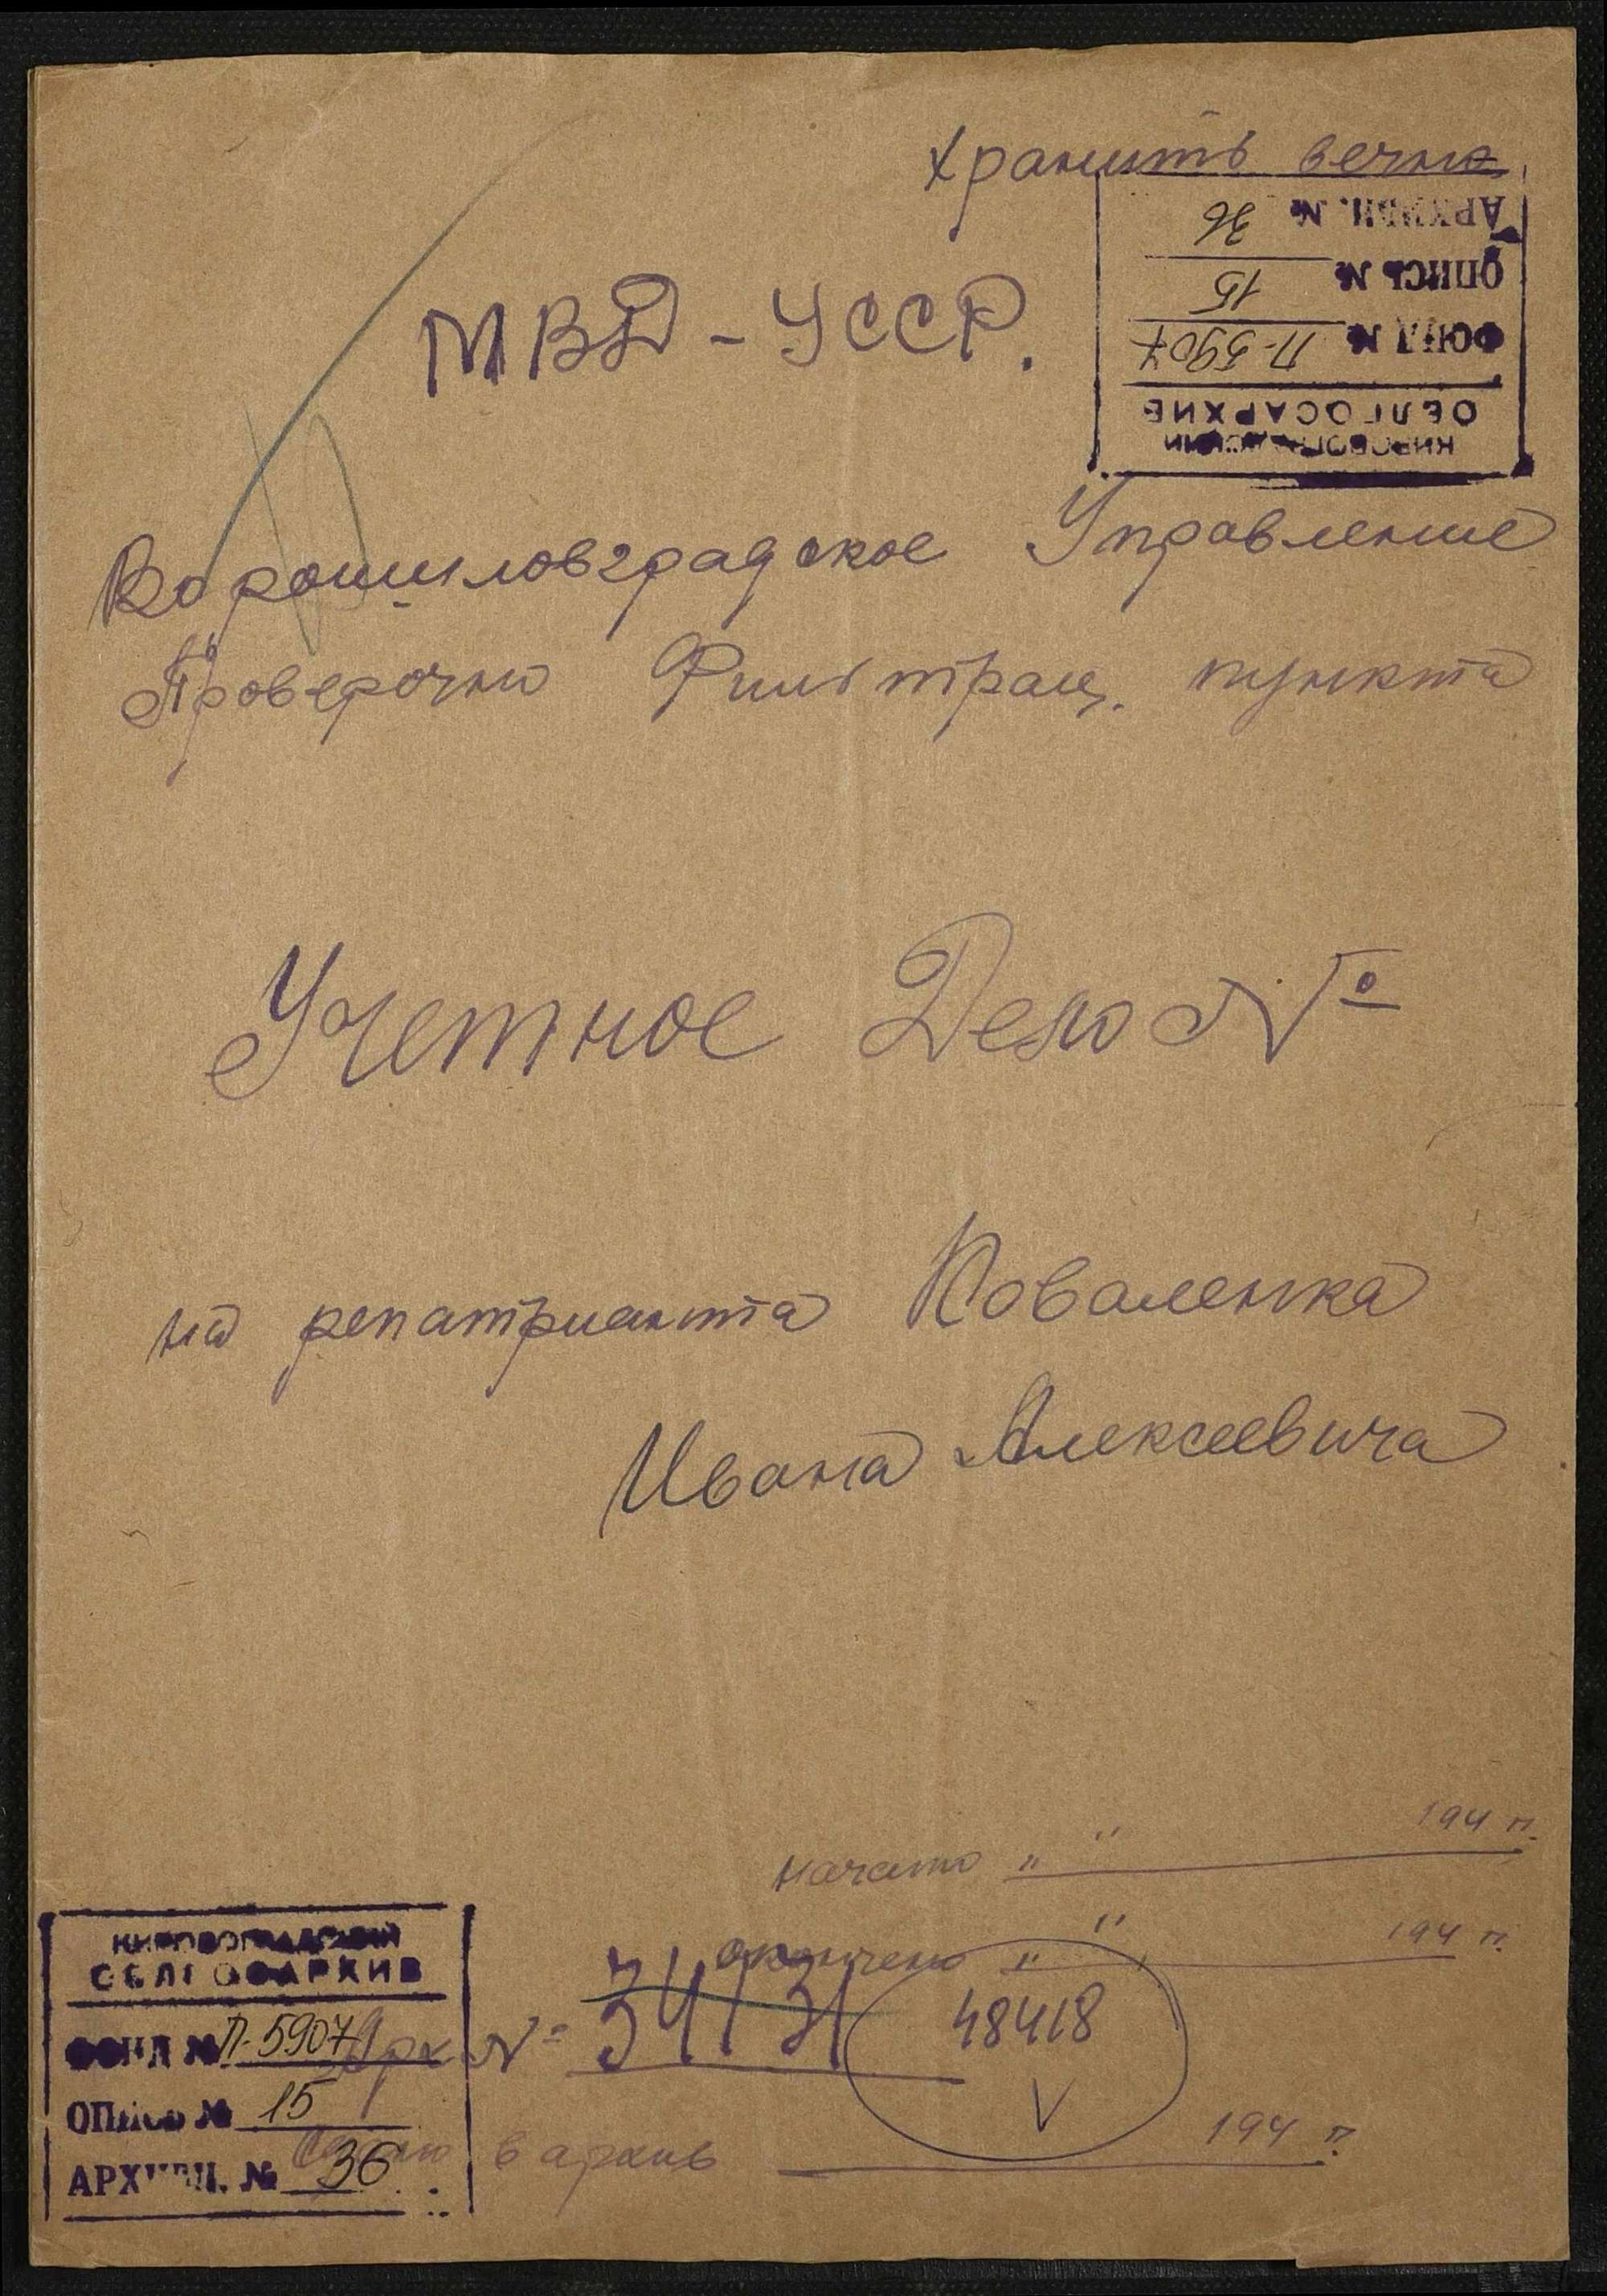 Хранить вечно
КИРОВОГРАДСКИЙ
ОБЛГОСАРХИВ
ФОНД № П-5907
ОПИСЬ № 15
АРХИВН. № 36
МВД - УССР.
Ворошиловградское Управление
Проверочно Фильтрац. пункта
Учетное Дело №
на репатрианта Коваленка
Ивана Алексеевича
начато " " 194 г.
окончено " " 194 г.
Арх № 34131 48418
Сдано в архив 194 г.
КИРОВОГРАДСКИЙ
ОБЛГОСАРХИВ
ФОНД № П-5907
ОПИСЬ № 15
АРХИВН. № 36